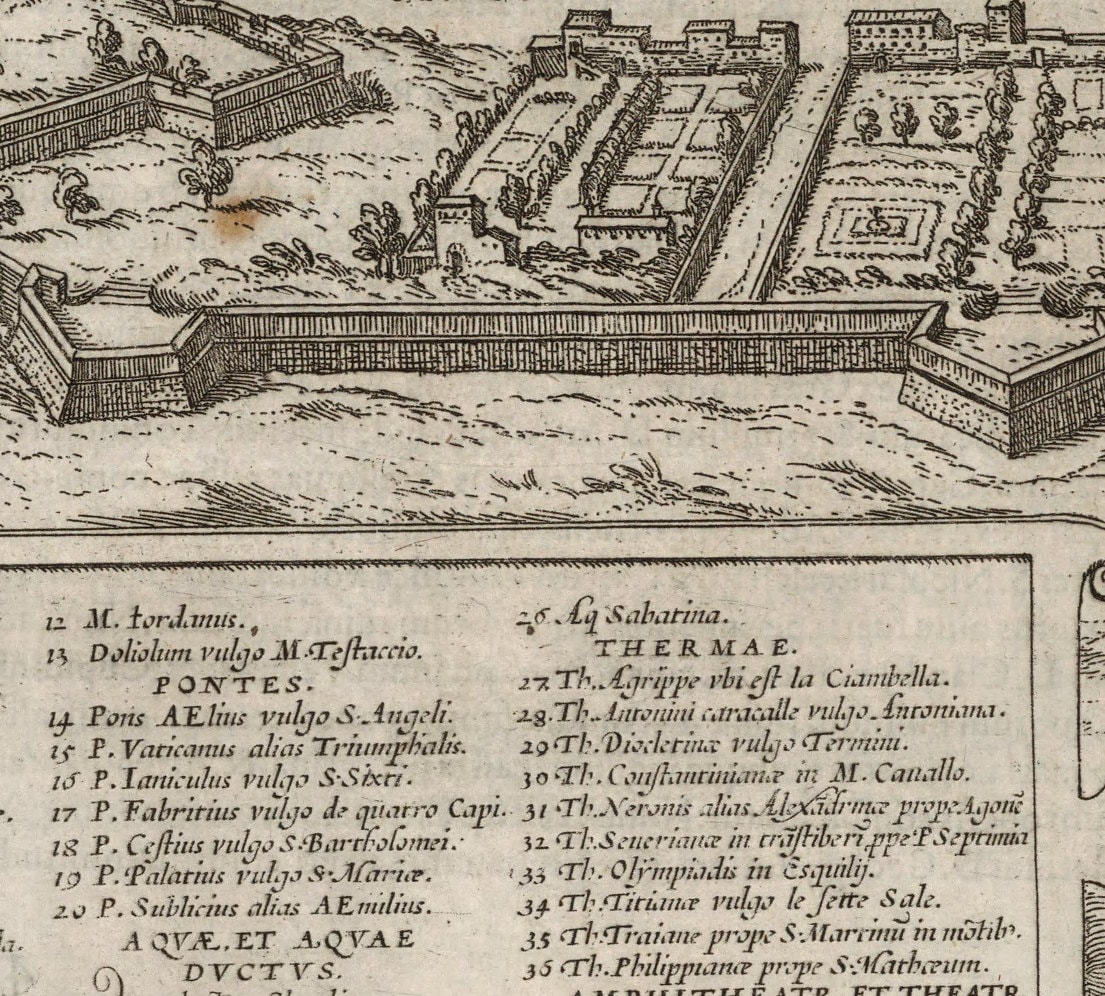 12 M. Iordanus.
13 Doliolum vulgo M. Testaccio.
PONTES.
14 Pons AElius vulgo S. Angeli.
15 P. Vaticanus alias Triumphalis.
16 P. Ianiculus vulgo S. Sixti.
17 P. Fabritius vulgo de quatro Capi.
18 P. Cestius vulgo S. Bartholomei.
19 P. Palatius vulgo S. Mariæ.
20 P. Sublicius alias AEmilius.
AQVÆ, ET AQVAE
DVCTVS.
26 Æq Sabatina.
THERMAE.
27 Th. Agrippe vbi est la Ciambella.
28. Th. Antonini caracalle vulgo Antoniana.
29 Th. Diocletinæ vulgo Termini.
30 Th. Constantinianæ in M. Cauallo.
31 Th. Neronis alias Alexãdrinæ prope Agonẽ
32 Th. Seuerianæ in trãstiberĩ ppe P Septimia
33 Th. Olympiadis in Esquilij.
34 Th. Titianæ vulgo le sette Sale.
35 Th. Traiane prope S. Martinũ in mõtib.
36 Th. Philippianæ prope S. Mathæum.
AMPHITHEATR. ET THEATR